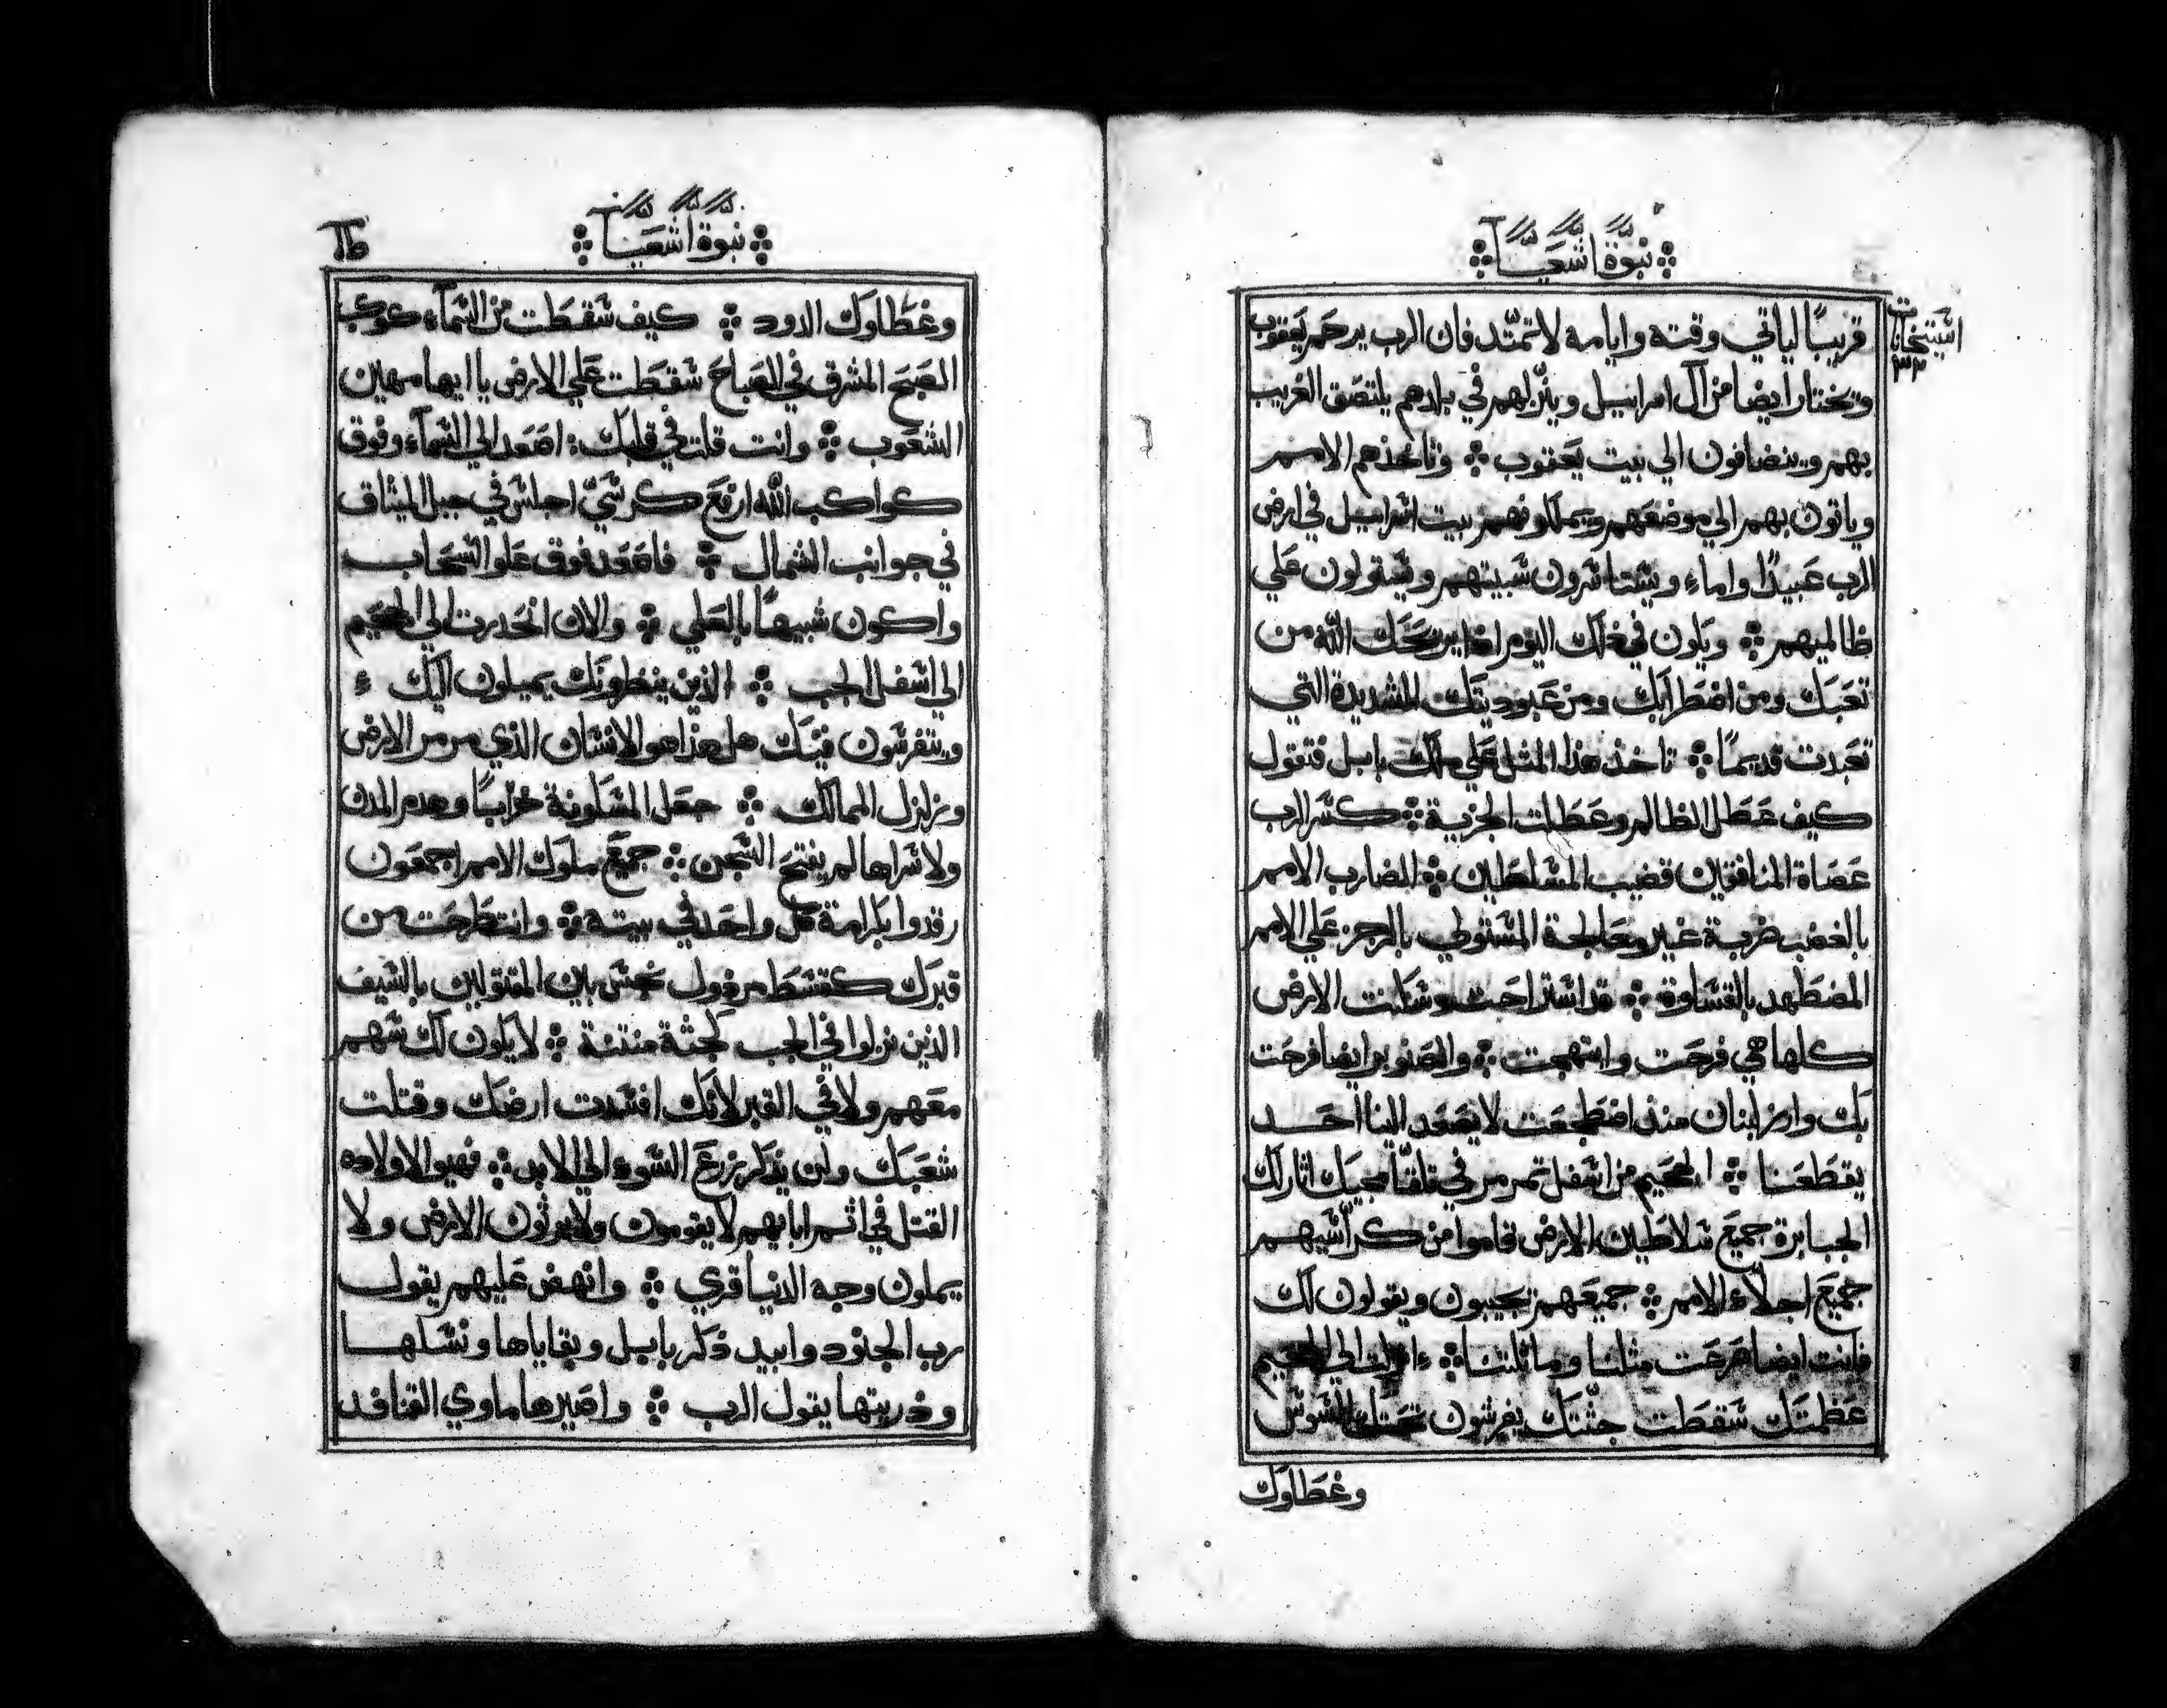 نبوة اشعيا
اشتخانات
٣٣
قريبًا لياتي وقته وايامه لا تمتد فان الرب يرحم يعقوب
ويختار ايضا من آل اسراييل وينزلهم في بلادهم يلتصق الغريب
بهم وينضافون الي بيت يعقوب وتاخذهم الامم
وياتون بهم الي موضعهم ويملكوفهم بيت اسراييل في ارض
الرب عبيدًا واماء ويستاثرون شبيتهم ويستولون علي
ظالميهم ويكون في ذلك اليوم اذا يريحك الله من
تعبك ومن اضطرابك ومن عبوديتك الشديدة التي
تعبدت قديمًا تاخذ هذا المثل علي ملك بابل فتقول
كيف عطل الظالم وعطلت الجزية كسر الرب
عصاة المنافقين قضيب المسلطين المضارب الامم
بالغضب ضربة غير معالجة المستوطي بالرجز علي الامم
المضطهد بالقساوة قد استراحت وسكنت الارض
كلها هي فرحت وابتهجت والصنوبر ايضا فرحت
بك وارز لبنان منذ اضطجعت لا يصعد الينا احد
يقطعنا الجحيم من اسفل تمرمر في تلقا مجيك اثار لك
الجبابرة جميع سلاطين الارض قاموا من كراسيهم
جميع اجلاء الامم جميعهم يجيبون ويقولون لك
فانت ايضا هرعت مثلنا وماثلتنا انزلت الي الجحيم
عظمتك سقطت جثتك يفرشون تحتك السوس
وغطاوك
نبوة اشعيا
وغطاوك الدود كيف سقطت من السماء كوكب
الصبح المشرق في الصباح سقطت علي الارض يا ايها مهين
الشعوب وانت قلت في قلبك اصعد الي السماء وفوق
كواكب الله ارفع كرسي اجلس في جبل الميثاق
في جوانب الشمال فاصعد فوق علو السحاب
واكون شبيهًا بالعلي والان انحدرت الي الجحيم
الي اسفل الجب الذين ينظرونك يميلون اليك
ويتفرسون فيك هل هذا هو الانسان الذي مرمر الارض
وزلزل الممالك جعل المسكونة خرابًا وهدم المدن
ولاسراها لم يفتح السجن جميع ملوك الامم اجمعون
رقدوا بكرامة كل واحد في بيته وانت طرحت من
قبرك كقسط مرذول نجس بين المقتولين بالسيف
الذين نزلوا في الجب كجثة منتنة لا يكون لك سهم
معهم ولا في القبر لانك افسدت ارضك وقتلت
شعبك ولن يذكر زرع السوء الي الابد فهيوا لاولاده
القتل في اثم اباييهم لا يقومون ولا يرثون الارض ولا
يملون وجه الدنيا قري وانهض عليهم يقول
رب الجنود وابيد ذكر بابل وبقاياها ونسلها
وذريتها يقول الرب واصيرها ماوي القنافد